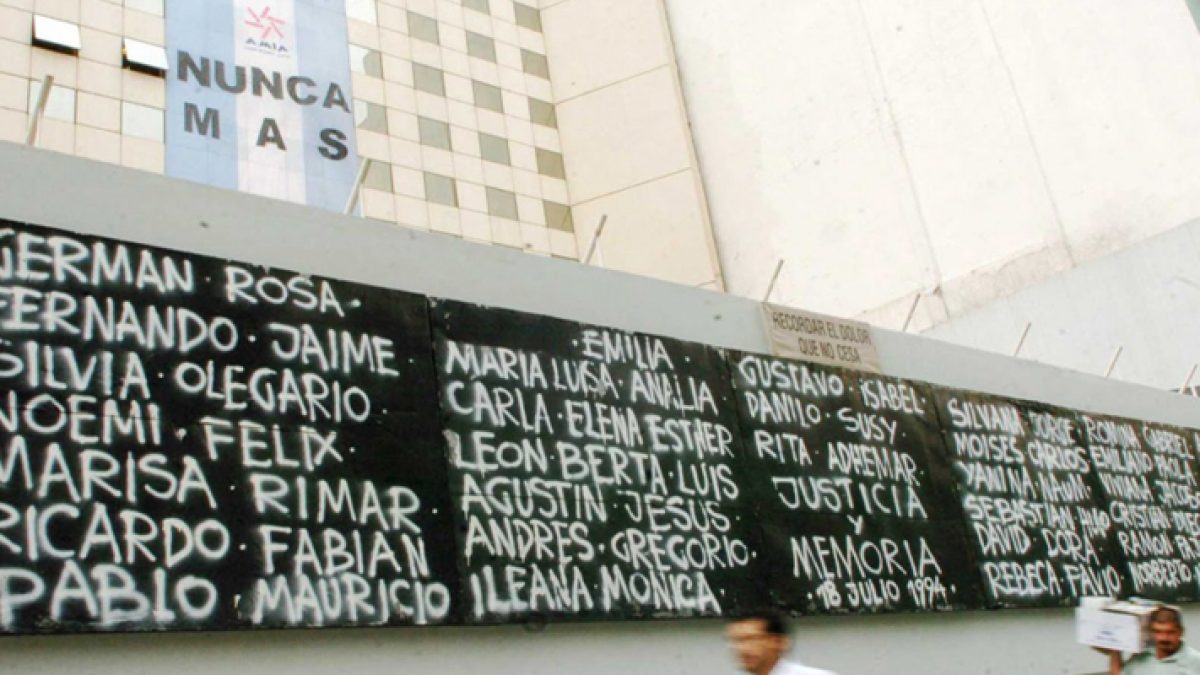 AMIA
NUNCA
MAS
RECORDAR EL DOLOR
QUE NO CESA
GERMAN · ROSA ·
FERNANDO · JAIME ·
SILVIA · OLEGARIO ·
NOEMI · FELIX ·
MARISA · RIMAR ·
RICARDO · FABIAN ·
PABLO · MAURICIO
· EMILIA ·
MARIA LUISA · ANALIA ·
CARLA · ELENA ESTHER
LEON · BERTA · LUIS
AGUSTIN · JESUS ·
ANDRES · GREGORIO ·
ILEANA MONICA ·
GUSTAVO · ISABEL ·
DANILO · SUSY ·
RITA · ADHEMAR ·
JUSTICIA
Y
MEMORIA
18 JULIO 1994 ·
SILVANA · JORGE ·
MOISES · CARLOS
YANINA · NAUN ·
SEBASTIAN · HUGO
DAVID · DORA ·
REBECA · FAVIO ·
ROMINA · GABRIEL
EMILIANO · PAOLA
VIVIANA
CRISTIAN
RAMON
NORBERTO